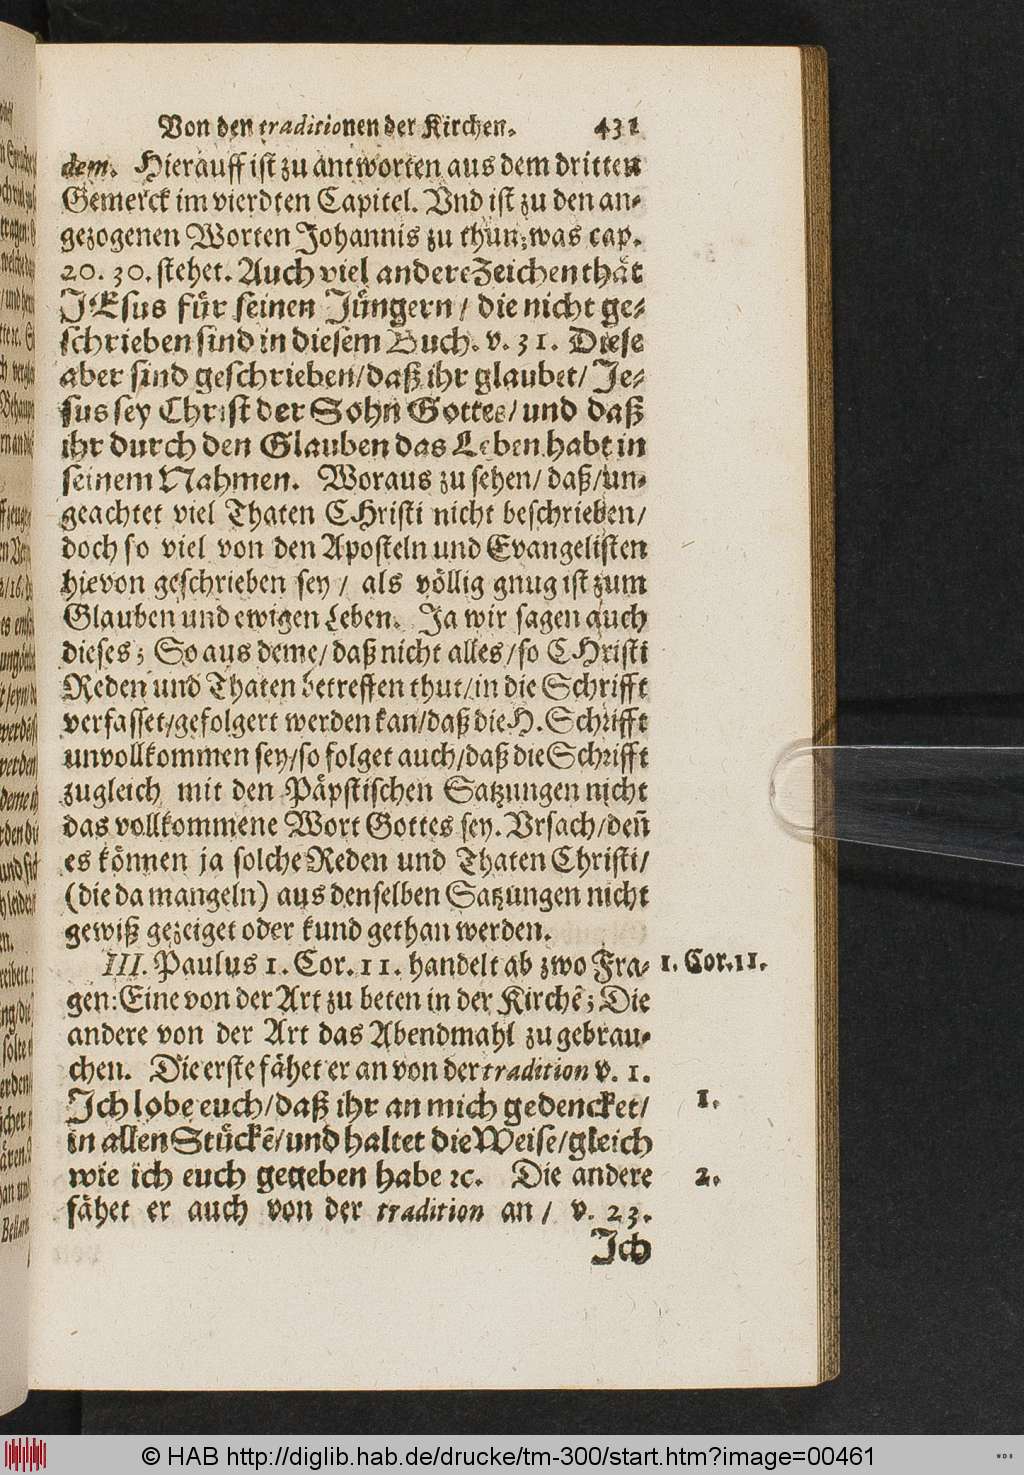 Von den traditionen der Kirchen. 431
dem. Hierauff ist zu antworten aus dem dritten
Gemerck im vierdten Capitel. Vnd ist zu den an-
gezogenen Worten Johannis zu thun; was cap.
20. 30. stehet. Auch viel andere Zeichen thät
JEsus für seinen Jüngern / die nicht ge-
schrieben sind in diesem Buch. v. 31. Diese
aber sind geschrieben/daß ihr glaubet/ Je-
sus sey Christ der Sohn Gottes/ und daß
ihr durch den Glauben das Leben habt in
seinem Nahmen. Woraus zu sehen/ daß/un-
geachtet viel Thaten CHristi nicht beschrieben/
doch so viel von den Aposteln und Evangelisten
hievon geschrieben sey / als völlig gnug ist zum
Glauben und ewigen Leben. Ja wir sagen auch
dieses; So aus deme/ daß nicht alles/so CHristi
Reden und Thaten betreffen thut/in die Schrifft
verfasset/gefolgert werden kan/daß die H. Schrifft
unvollkommen sey/so folget auch/daß die Schrifft
zugleich mit den Päpstischen Satzungen nicht
das vollkommene Wort Gottes sey. Vrsach/deñ
es können ja solche Reden und Thaten Christi/
(die da mangeln) aus denselben Satzungen nicht
gewiß gezeiget oder kund gethan werden.
III. Paulus 1. Cor. 11. handelt ab zwo Fra- 1. Cor. 11.
gen: Eine von der Art zu beten in der Kirchē; Die
andere von der Art das Abendmahl zu gebrau-
chen. Die erste fähet er an von der tradition v. 1.
Ich lobe euch/daß ihr an mich gedencket/ 1.
in allen Stückē/und haltet die Weise/gleich
wie ich euch gegeben habe ꝛc. Die andere 2.
fähet er auch von der tradition an / v. 23.
Ich
© HAB http://diglib.hab.de/drucke/tm-300/start.htm?image=00461